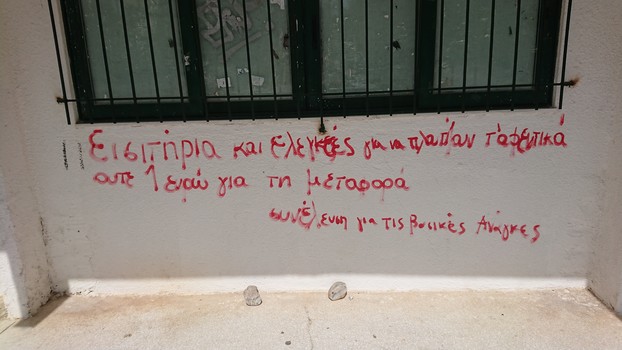 Εισιτήρια και ελεγκτές για να πλατάν τ'αφεντικά
ουτε 1 ευρώ για τη μεταφορά
συνέλευση για τις βασικές Ανάγκες